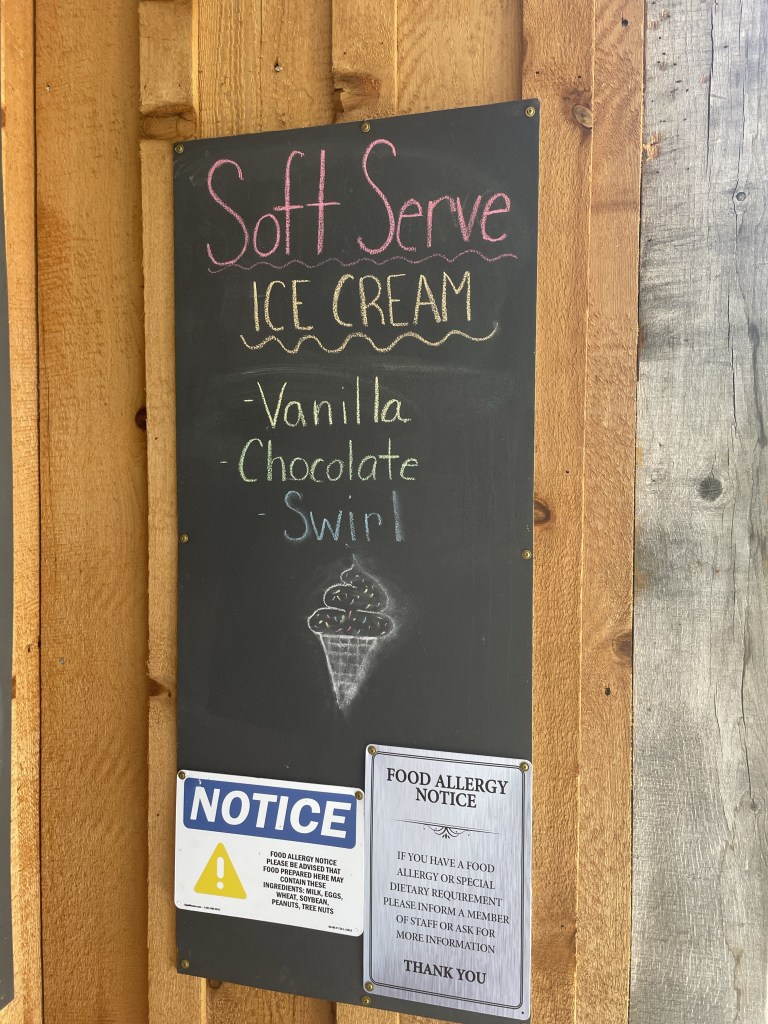 Soft Serve
ICE CREAM
-Vanilla
-Chocolate
-Swirl
NOTICE
FOOD ALLERGY NOTICE
PLEASE BE ADVISED THAT
FOOD PREPARED HERE MAY
CONTAIN THESE
INGREDIENTS: MILK, EGGS,
WHEAT, SOYBEAN,
PEANUTS, TREE NUTS
FOOD ALLERGY
NOTICE
IF YOU HAVE A FOOD
ALLERGY OR SPECIAL
DIETARY REQUIREMENT
PLEASE INFORM A MEMBER
OF STAFF OR ASK FOR
MORE INFORMATION
THANK YOU